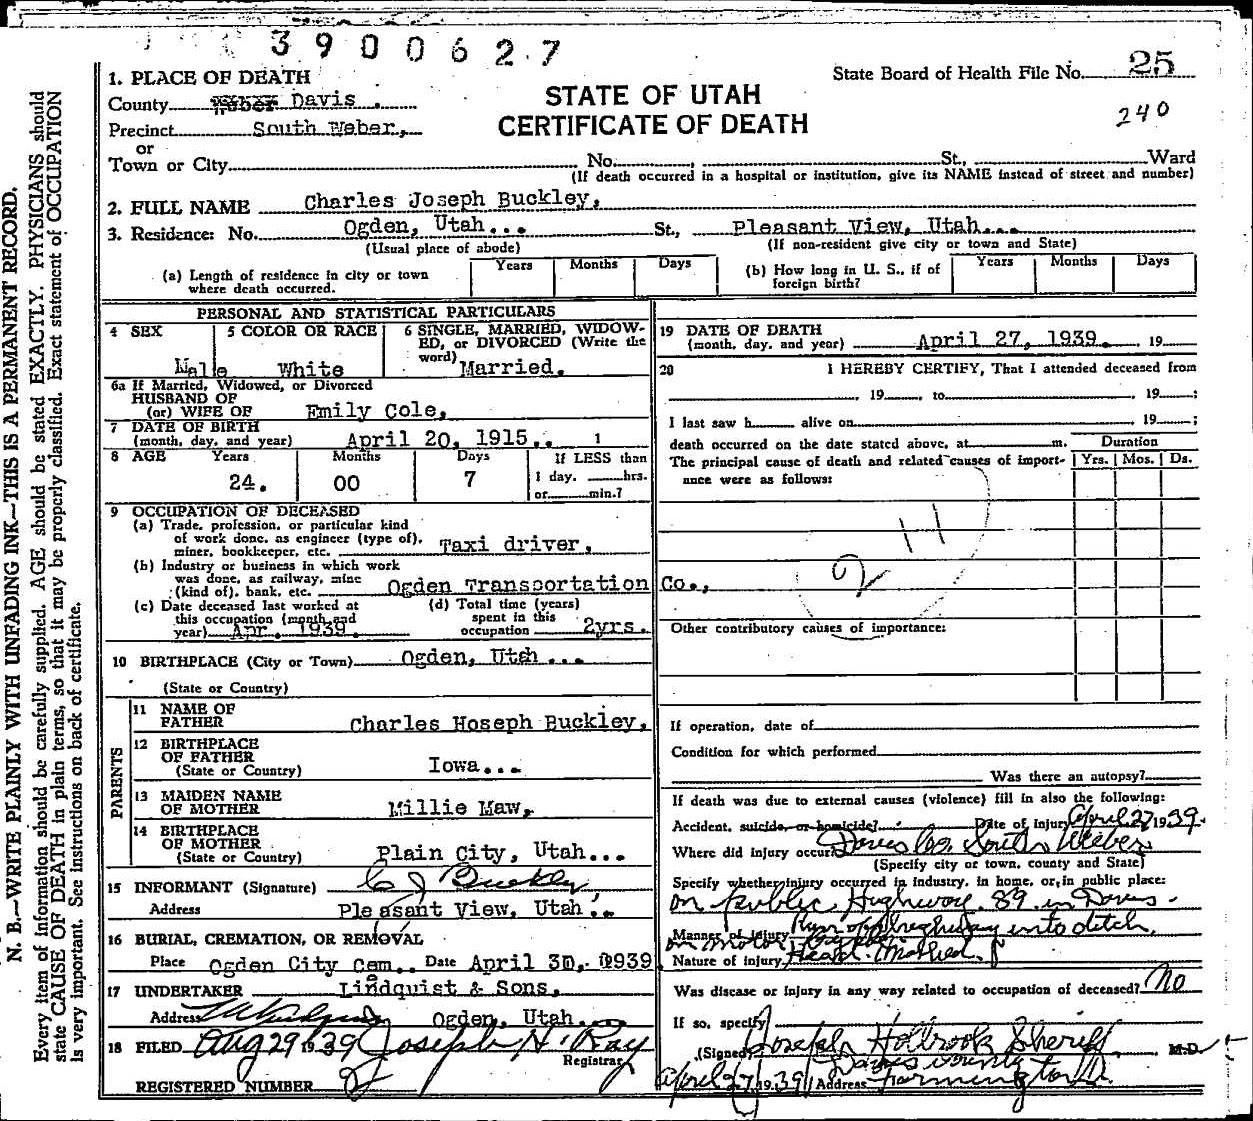 3900627
State Board of Health File No. 25
240
STATE OF UTAH
CERTIFICATE OF DEATH
1. PLACE OF DEATH
County Weber Davis .
Precinct South Weber,
or
Town or City No. , St., Ward
(If death occurred in a hospital or institution, give its NAME instead of street and number)
2. FULL NAME Charles Joseph Buckley,
3. Residence: No. Ogden, Utah... St., Pleasant View, Utah...
(Usual place of abode) (If non-resident give city or town and State)
(a) Length of residence in city or town where death occurred. Years Months Days
(b) How long in U. S., if of foreign birth? Years Months Days
PERSONAL AND STATISTICAL PARTICULARS
4 SEX 5 COLOR OR RACE 6 SINGLE, MARRIED, WIDOW-
ED, or DIVORCED (Write the
word)
Male White Married.
6a If Married, Widowed, or Divorced
HUSBAND OF
(or) WIFE OF Emily Cole,
7 DATE OF BIRTH
(month, day, and year) April 20, 1915.. 1
8 AGE Years Months Days If LESS than
24. 00 7 1 day. hrs.
or min.?
9 OCCUPATION OF DECEASED
(a) Trade, profession, or particular kind
of work done, as engineer (type of),
miner, bookkeeper, etc. Taxi driver,
(b) Industry or business in which work
was done, as railway, mine
(kind of), bank, etc. Ogden Transportation Co.,
(c) Date deceased last worked at
this occupation (month and
year) Apr. 1939.
(d) Total time (years)
spent in this
occupation 2yrs.
10 BIRTHPLACE (City or Town) Ogden, Utah ...
(State or Country)
PARENTS
11 NAME OF
FATHER Charles Hoseph Buckley,
12 BIRTHPLACE
OF FATHER
(State or Country) Iowa...
13 MAIDEN NAME
OF MOTHER Millie Maw,
14 BIRTHPLACE
OF MOTHER
(State or Country) Plain City, Utah...
15 INFORMANT (Signature) C J Buckley
Address Pleasant View, Utah..
16 BURIAL, CREMATION, OR REMOVAL
Place Ogden City Cem.. Date April 30, 1939
17 UNDERTAKER Lindquist & Sons,
Address Ogden, Utah.
18 FILED Aug 29 1939 Joseph H. Ray
Registrar
REGISTERED NUMBER 2
19 DATE OF DEATH
(month, day, and year) April 27, 1939. , 19
20 I HEREBY CERTIFY, That I attended deceased from
, 19 , to , 19 ;
I last saw h alive on 19 ;
death occurred on the date stated above, at m.
The principal cause of death and related causes of import-
ance were as follows:
Duration
Yrs. Mos. Ds.
Other contributory causes of importance:
If operation, date of
Condition for which performed
Was there an autopsy?
If death was due to external causes (violence) fill in also the following:
Accident, suicide, or homicide? Date of injury April 27 1939.
Where did injury occur? Davis Co. South Weber
(Specify city or town, county and State)
Specify whether injury occurred in industry, in home, or, in public place:
on Public Highway 89 in Davis
Manner of injury Ryn off highway into ditch,
on motor
Nature of injury Head Mashed
Was disease or injury in any way related to occupation of deceased? No
If so, specify
(Signed) Joseph Holbrook Sheriff M.D.
Davis County
April 27, 1939 Address Farmington
N. B.—WRITE PLAINLY WITH UNFADING INK—THIS IS A PERMANENT RECORD.
Every item of information should be carefully supplied. AGE should be stated EXACTLY. PHYSICIANS should
state CAUSE OF DEATH in plain terms, so that it may be properly classified. Exact statement of OCCUPATION
is very important. See instructions on back of certificate.